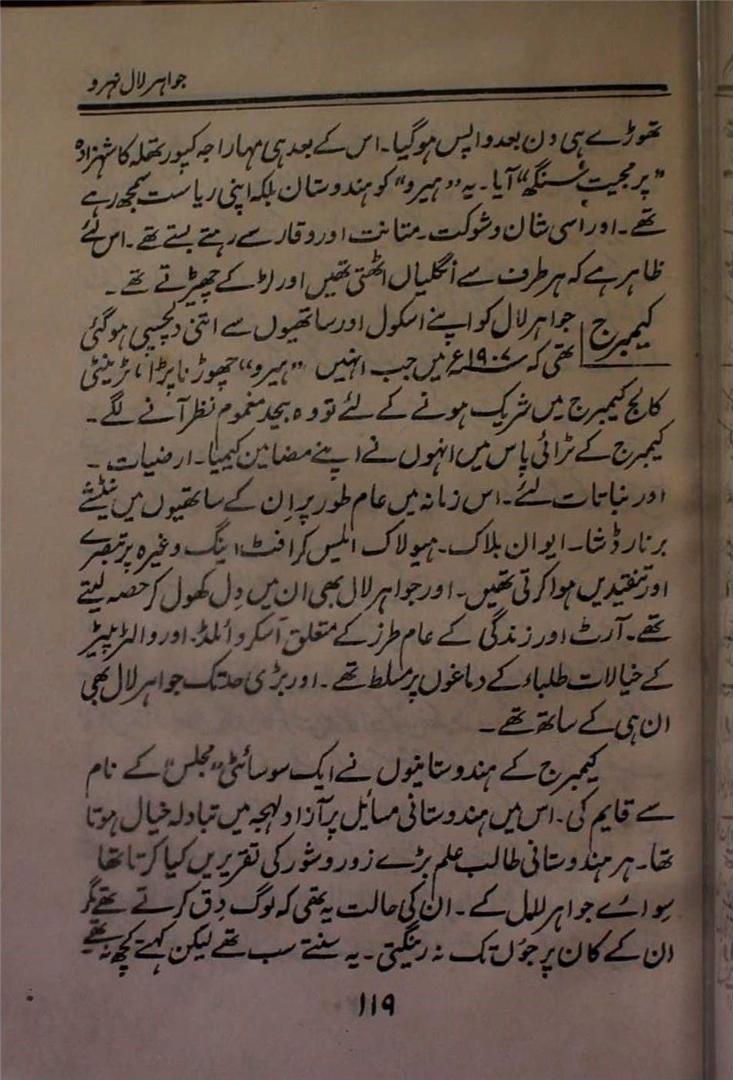 جواہر لال نہرو
تھوڑے ہی دن بعد واپس ہوگیا۔ اس کے بعد ہی مہاراجہ کپورتھلہ کا شہزادہ
”پرمجیت سنگھ“ آیا۔ یہ ”ہیرو“ کو ہندوستان بلکہ اپنی ریاست سمجھ رہے
تھے۔ اور اسی شان و شوکت۔ متانت اور وقار سے رہتے بستے تھے۔ اس لئے
ظاہر ہے کہ ہر طرف سے انگلیاں اٹھتی تھیں اور لڑکے چھیڑتے تھے۔
کیمبرج جواہر لال کو اپنے اسکول اور ساتھیوں سے اتنی دلچسپی ہوگئی
تھی کہ ۱۹۰۷ء میں جب انہیں ”ہیرو“ چھوڑنا پڑا، ٹرینٹی
کالج کیمبرج میں شریک ہونے کے لئے تو وہ بیحد مغموم نظر آنے لگے۔
کیمبرج کے ٹرائی پاس میں انہوں نے اپنے مضامین کیمیا۔ ارضیات۔
اور نباتات لئے۔ اس زمانہ میں عام طور پر ان کے ساتھیوں میں نیٹشے
برنارڈ شا۔ ایوان بلاک۔ ہیولاک ایلس کرافٹ ایبنگ وغیرہ پر تبصرے
اور تنقیدیں ہوا کرتی تھیں۔ اور جواہر لال بھی ان میں دل کھول کر حصہ لیتے
تھے۔ آرٹ اور زندگی کے عام طرز کے متعلق آسکر وائلڈ۔ اور والٹر پیٹر
کے خیالات طلباء کے دماغوں پر مسلط تھے۔ اور بڑی حد تک جواہر لال بھی
ان ہی کے ساتھ تھے۔
کیمبرج کے ہندوستانیوں نے ایک سوسائٹی ”مجلس“ کے نام
سے قایم کی۔ اس میں ہندوستانی مسایل پر آزاد لہجہ میں تبادلہ خیال ہوتا
تھا۔ ہر ہندوستانی طالب علم بڑے زور و شور کی تقریریں کیا کرتا تھا
سوائے جواہر لال کے۔ ان کی حالت یہ تھی کہ لوگ دق کرتے تھے مگر
ان کے کان پر جوں تک نہ رینگتی۔ یہ سنتے سب تھے لیکن کہتے کچھ نہ تھے
۱۱۹